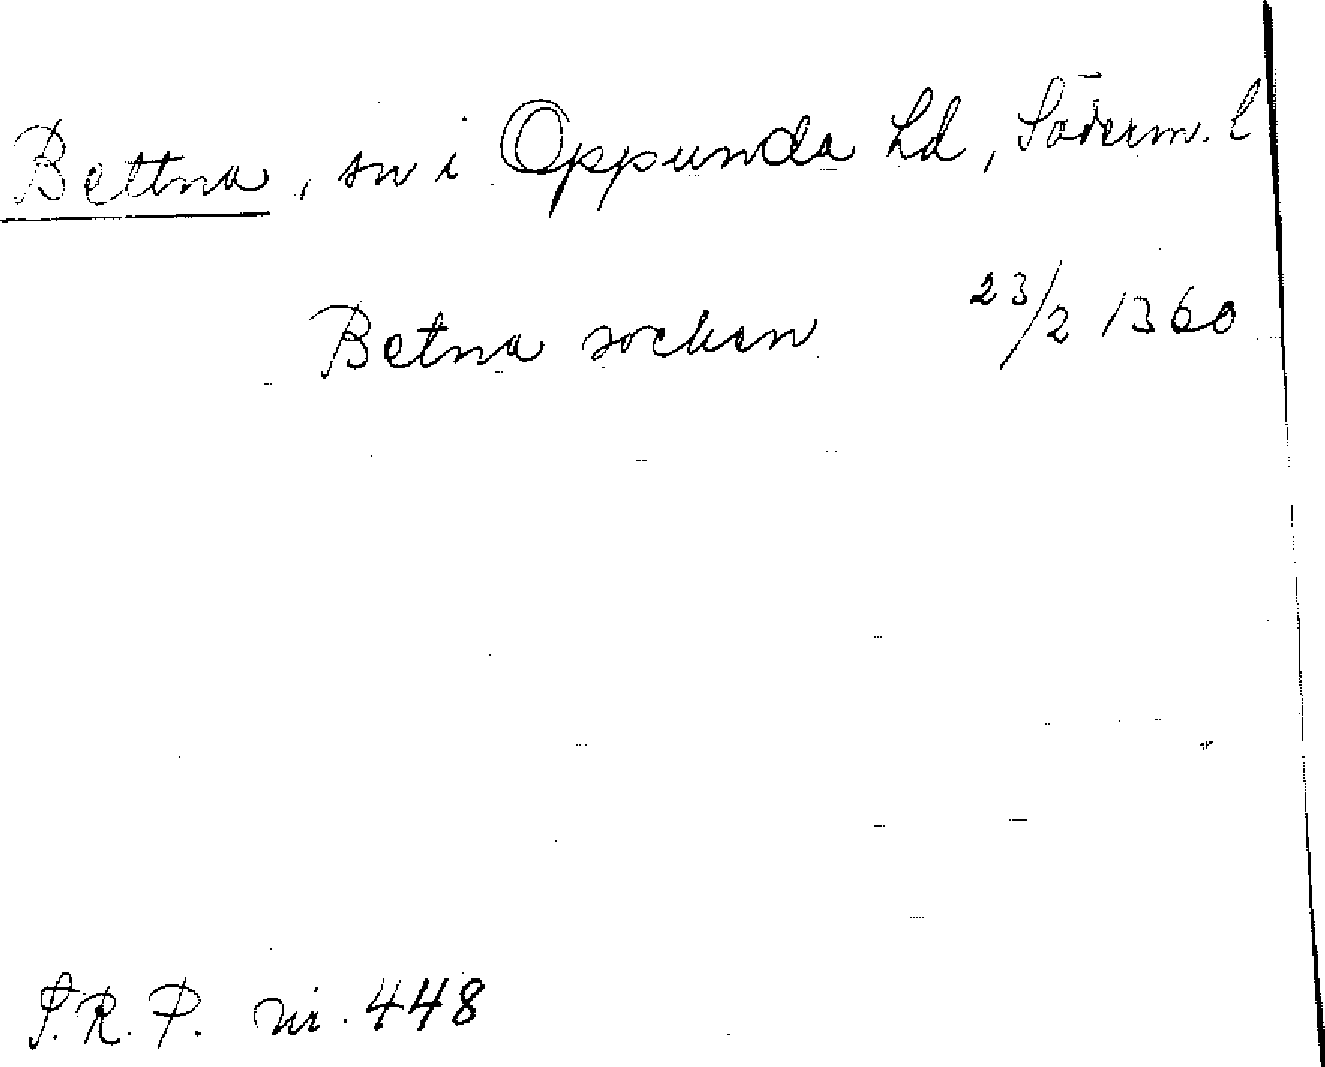 Bettna, sn i Oppunda hd, Söderm. l
Betna socken 23/2 1360
S.R.P. nr. 448